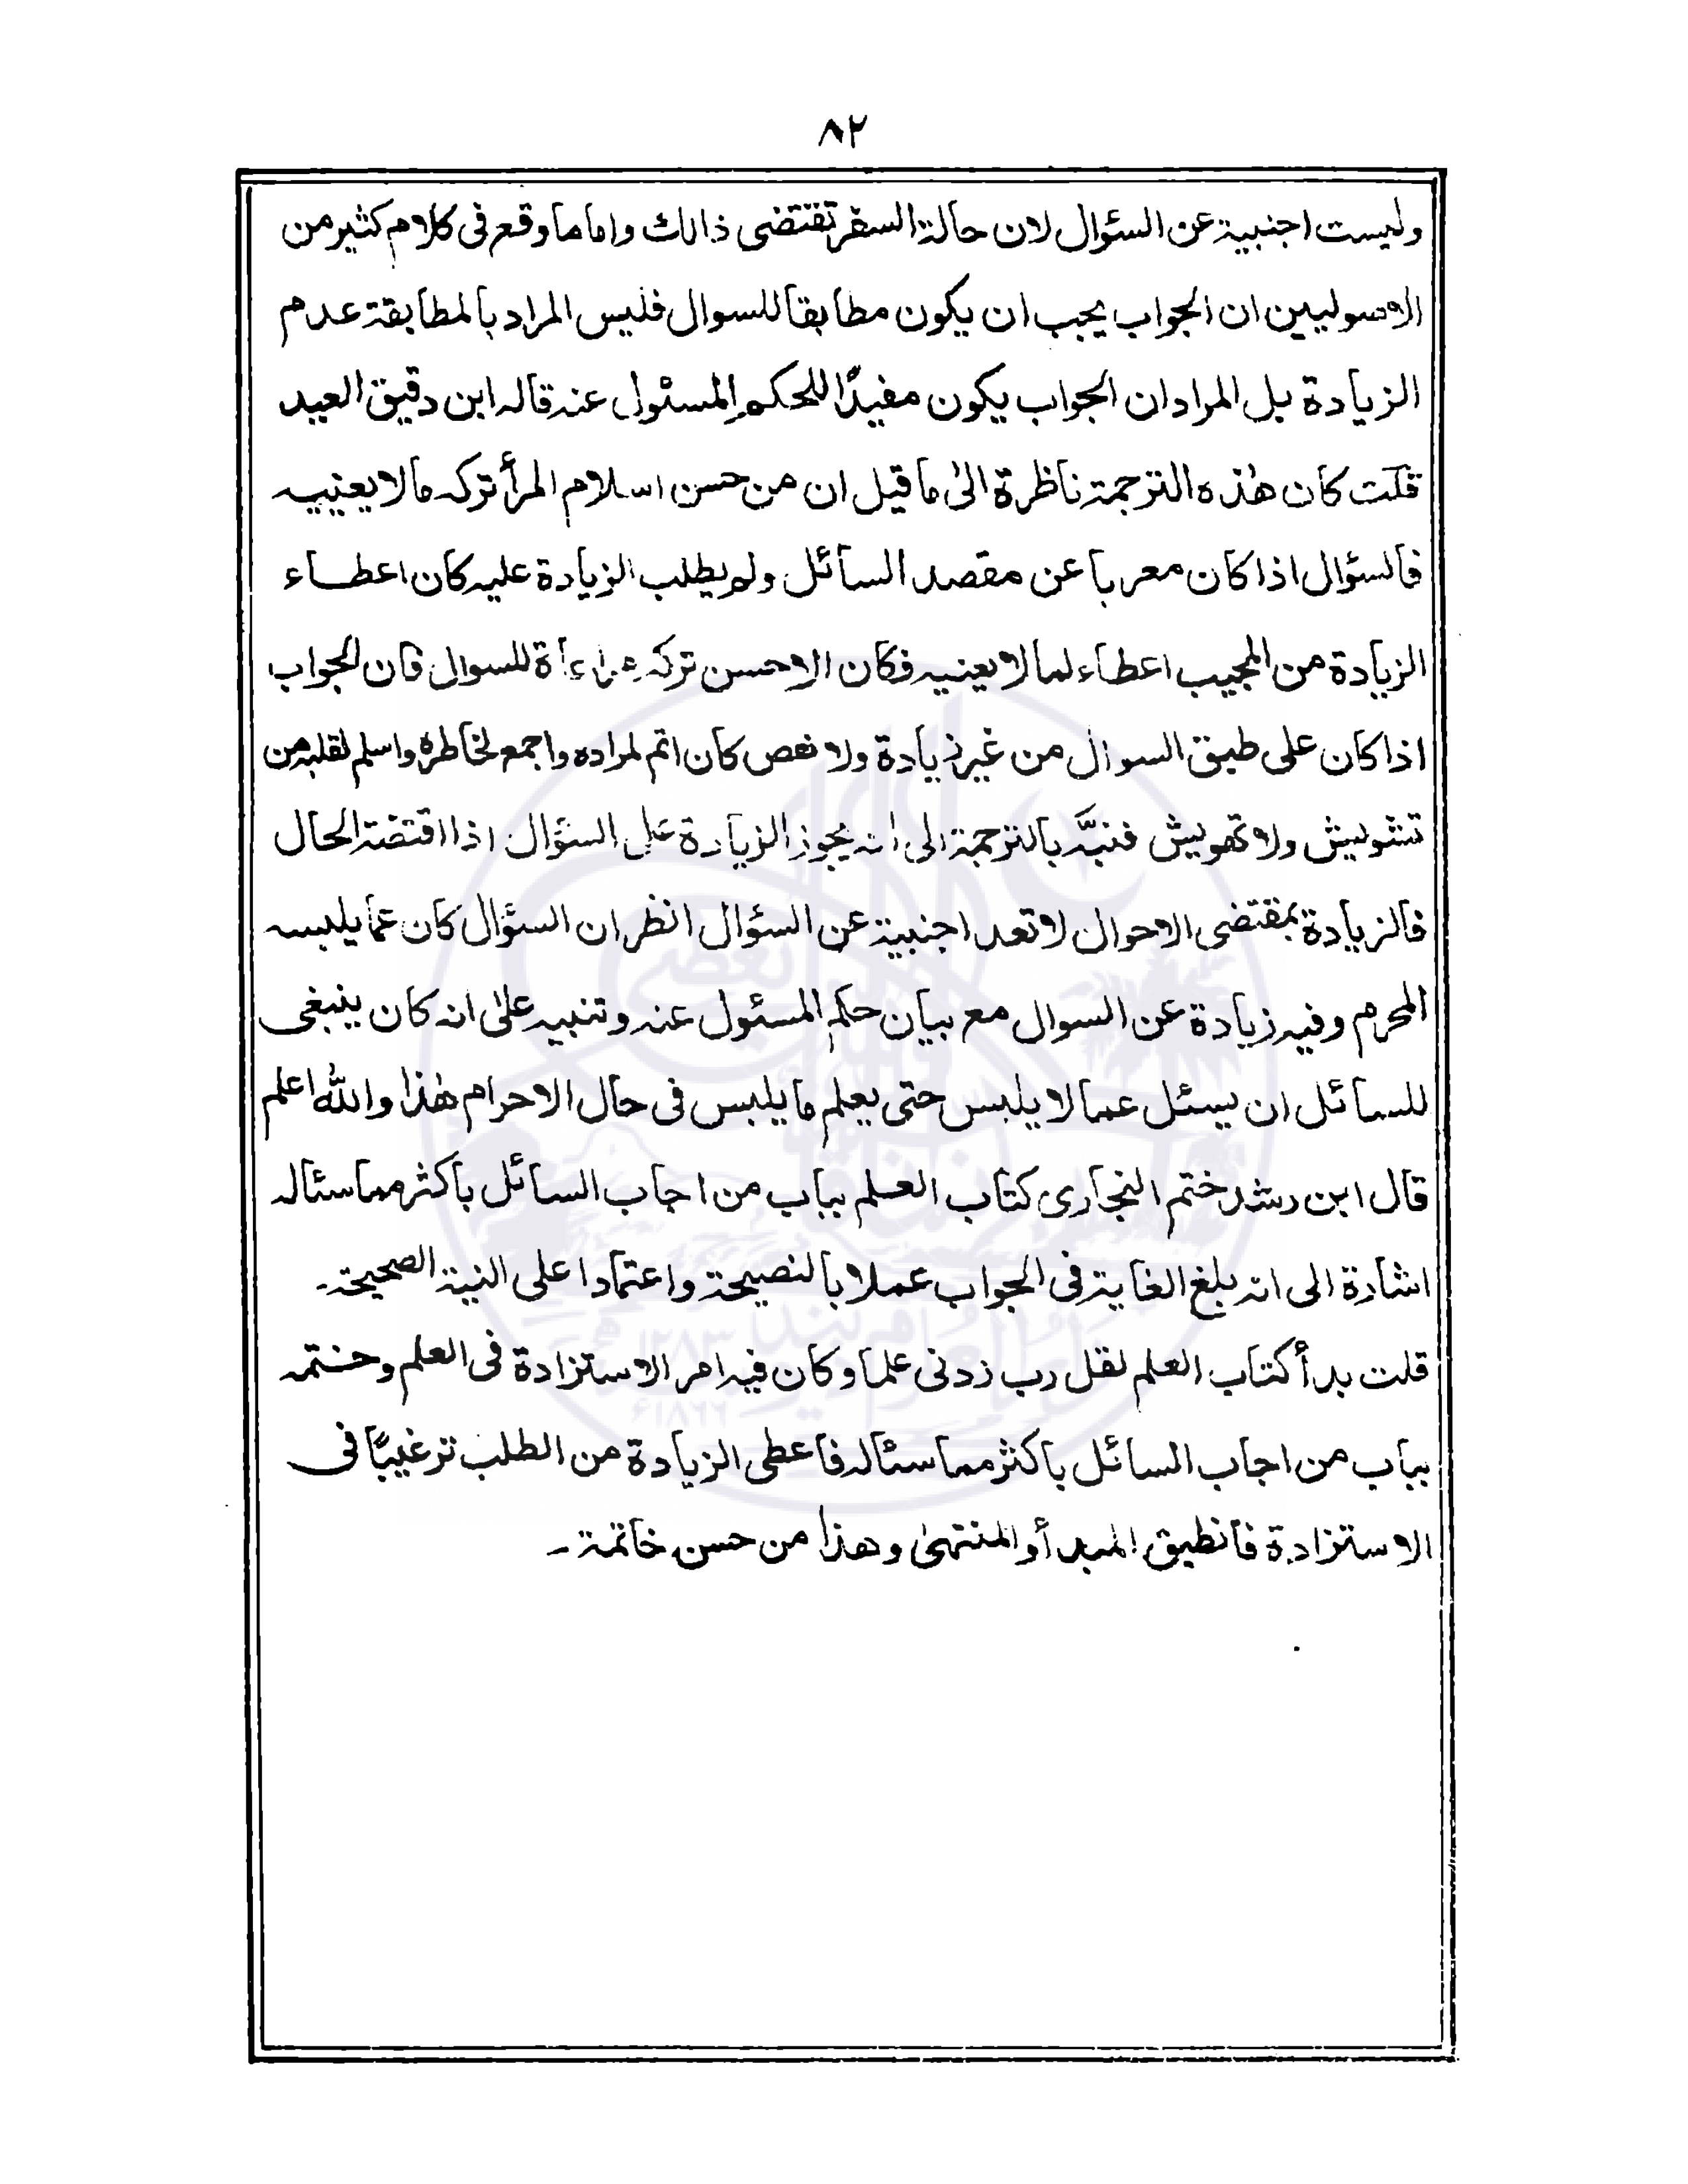 ٨٢
وليست اجنبية عن السئوال لان حالة السفر تقتضى ذالك واما ما وقع فى كلام كثير من
الاصوليين ان الجواب يجب ان يكون مطابقا للسوال فليس المراد بالمطابقة عدم
الزيادة بل المراد ان الجواب يكون مفيدًا للحكم المسئول عنه قاله ابن دقيق العيد
قلت كان هٰذه الترجمة ناظرة الىٰ ما قيل ان من حسن اسلام المرأ تركه ما لا يعنييه
فالسئوال اذا كان معربا عن مقصد السائل ولم يطلب الزيادة عليه كان اعطاء
الزيادة من المجيب اعطاء لما لا يعنيه فكان الاحسن تركه للسوال فان الجواب
اذا كان على طبق السوال من غير زيادة ولا نقص كان اتم لمراده واجمع لخاطره واسلم لقلبه من
تشويش ولا تهويش فنبَّه بالترجمة الى انه يجوز الزيادة على السئوال اذا اقتضته الحال
فالزيادة بمقتضى الاحوال لا تعد اجنبية عن السئوال انظر ان السئوال كان عما يلبسه
المحرم وفيه زيادة عن السوال مع بيان حكم المسئول عنه وتنبيه علىٰ انه كان ينبغى
للسائل ان يسئل عما لا يلبس حتى يعلم ما يلبس فى حال الاحرام هٰذا والله اعلم
قال ابن رشد ختم البخارى كتاب العلم بباب من اجاب السائل باكثر مما سئاله
اشارة الى انه بلغ الغاية فى الجواب عملا بالنصيحة واعتمادا على النية الصحيحة۔
قلت بدأ كتاب العلم لقل رب زدنى علما وكان فيه امر الاستزادة فى العلم وختمه
بباب من اجاب السائل باكثر مما سئاله فاعطى الزيادة من الطلب ترغيبًا فى
الاستزادة فانطبق المبدأ والمنتهىٰ وهذا من حسن خاتمة۔